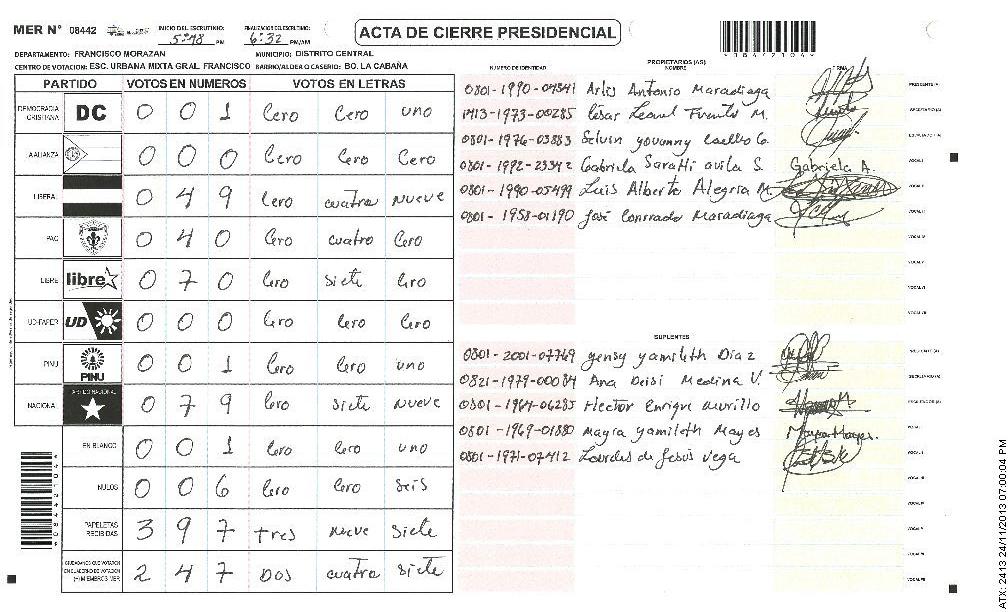 MER Nº 08442 INICIO DEL ESCRUTINIO: 5:48 PM FINALIZACION DEL ESCRUTINIO: 6:32 PM/AM
ACTA DE CIERRE PRESIDENCIAL
DEPARTAMENTO: FRANCISCO MORAZAN MUNICIPIO: DISTRITO CENTRAL
CENTRO DE VOTACION: ESC. URBANA MIXTA GRAL. FRANCISCO BARRIO/ALDEA O CASERIO: BO. LA CABAÑA
PARTIDO VOTOS EN NUMEROS VOTOS EN LETRAS
DEMOCRACIA CRISTIANA DC 0 0 1 Cero Cero uno
AALIANZA 0 0 0 Cero Cero Cero
LIBERAL 0 4 9 Cero cuatro nueve
PAC 0 4 0 Cero cuatro Cero
LIBRE libre 0 7 0 Cero siete Cero
UD-FAPER UD 0 0 0 Cero Cero Cero
PINU PINU 0 0 1 Cero Cero uno
NACIONAL PARTIDO NACIONAL 0 7 9 Cero siete nueve
EN BLANCO 0 0 1 Cero Cero uno
NULOS 0 0 6 Cero Cero seis
PAPELETAS RECIBIDAS 3 9 7 tres nueve siete
CIUDADANOS QUE VOTARON EN CUADERNO DE VOTACION (+) MIEMBROS MER 2 4 7 Dos cuatro siete
PROPIETARIOS (AS)
NUMERO DE IDENTIDAD NOMBRE FIRMA
0801-1990-04541 Arlis Antonio Maradiaga PRESIDENTE (A)
1413-1973-00285 César Leonel Fuentes M. SECRETARIO (A)
0801-1976-03883 Selvin yovanny Coello G. ESCRUTADOR (A)
0801-1992-23342 Gabriela Saratti avila S. Gabriela A. VOCAL I
0801-1990-05499 Luis Alberto Alegria M. VOCAL II
0801-1953-01190 José Conrrado Maradiaga VOCAL III
VOCAL IV
VOCAL V
VOCAL VI
VOCAL VII
SUPLENTES
0801-2001-07769 yensy yamileth Diaz PRESIDENTE (A)
0821-1979-00084 Ana Deisi Medina V. SECRETARIO (A)
0801-1964-06285 Hector Enrique Murillo ESCRUTADOR (A)
0801-1969-01880 Mayra yamileth Mayes Mayra Mayes. VOCAL I
0801-1971-07412 Lourdes de Jesús Vega VOCAL II
VOCAL III
VOCAL IV
VOCAL V
VOCAL VI
VOCAL VII
ATX: 2413 24/11/2013 07:00:04 PM